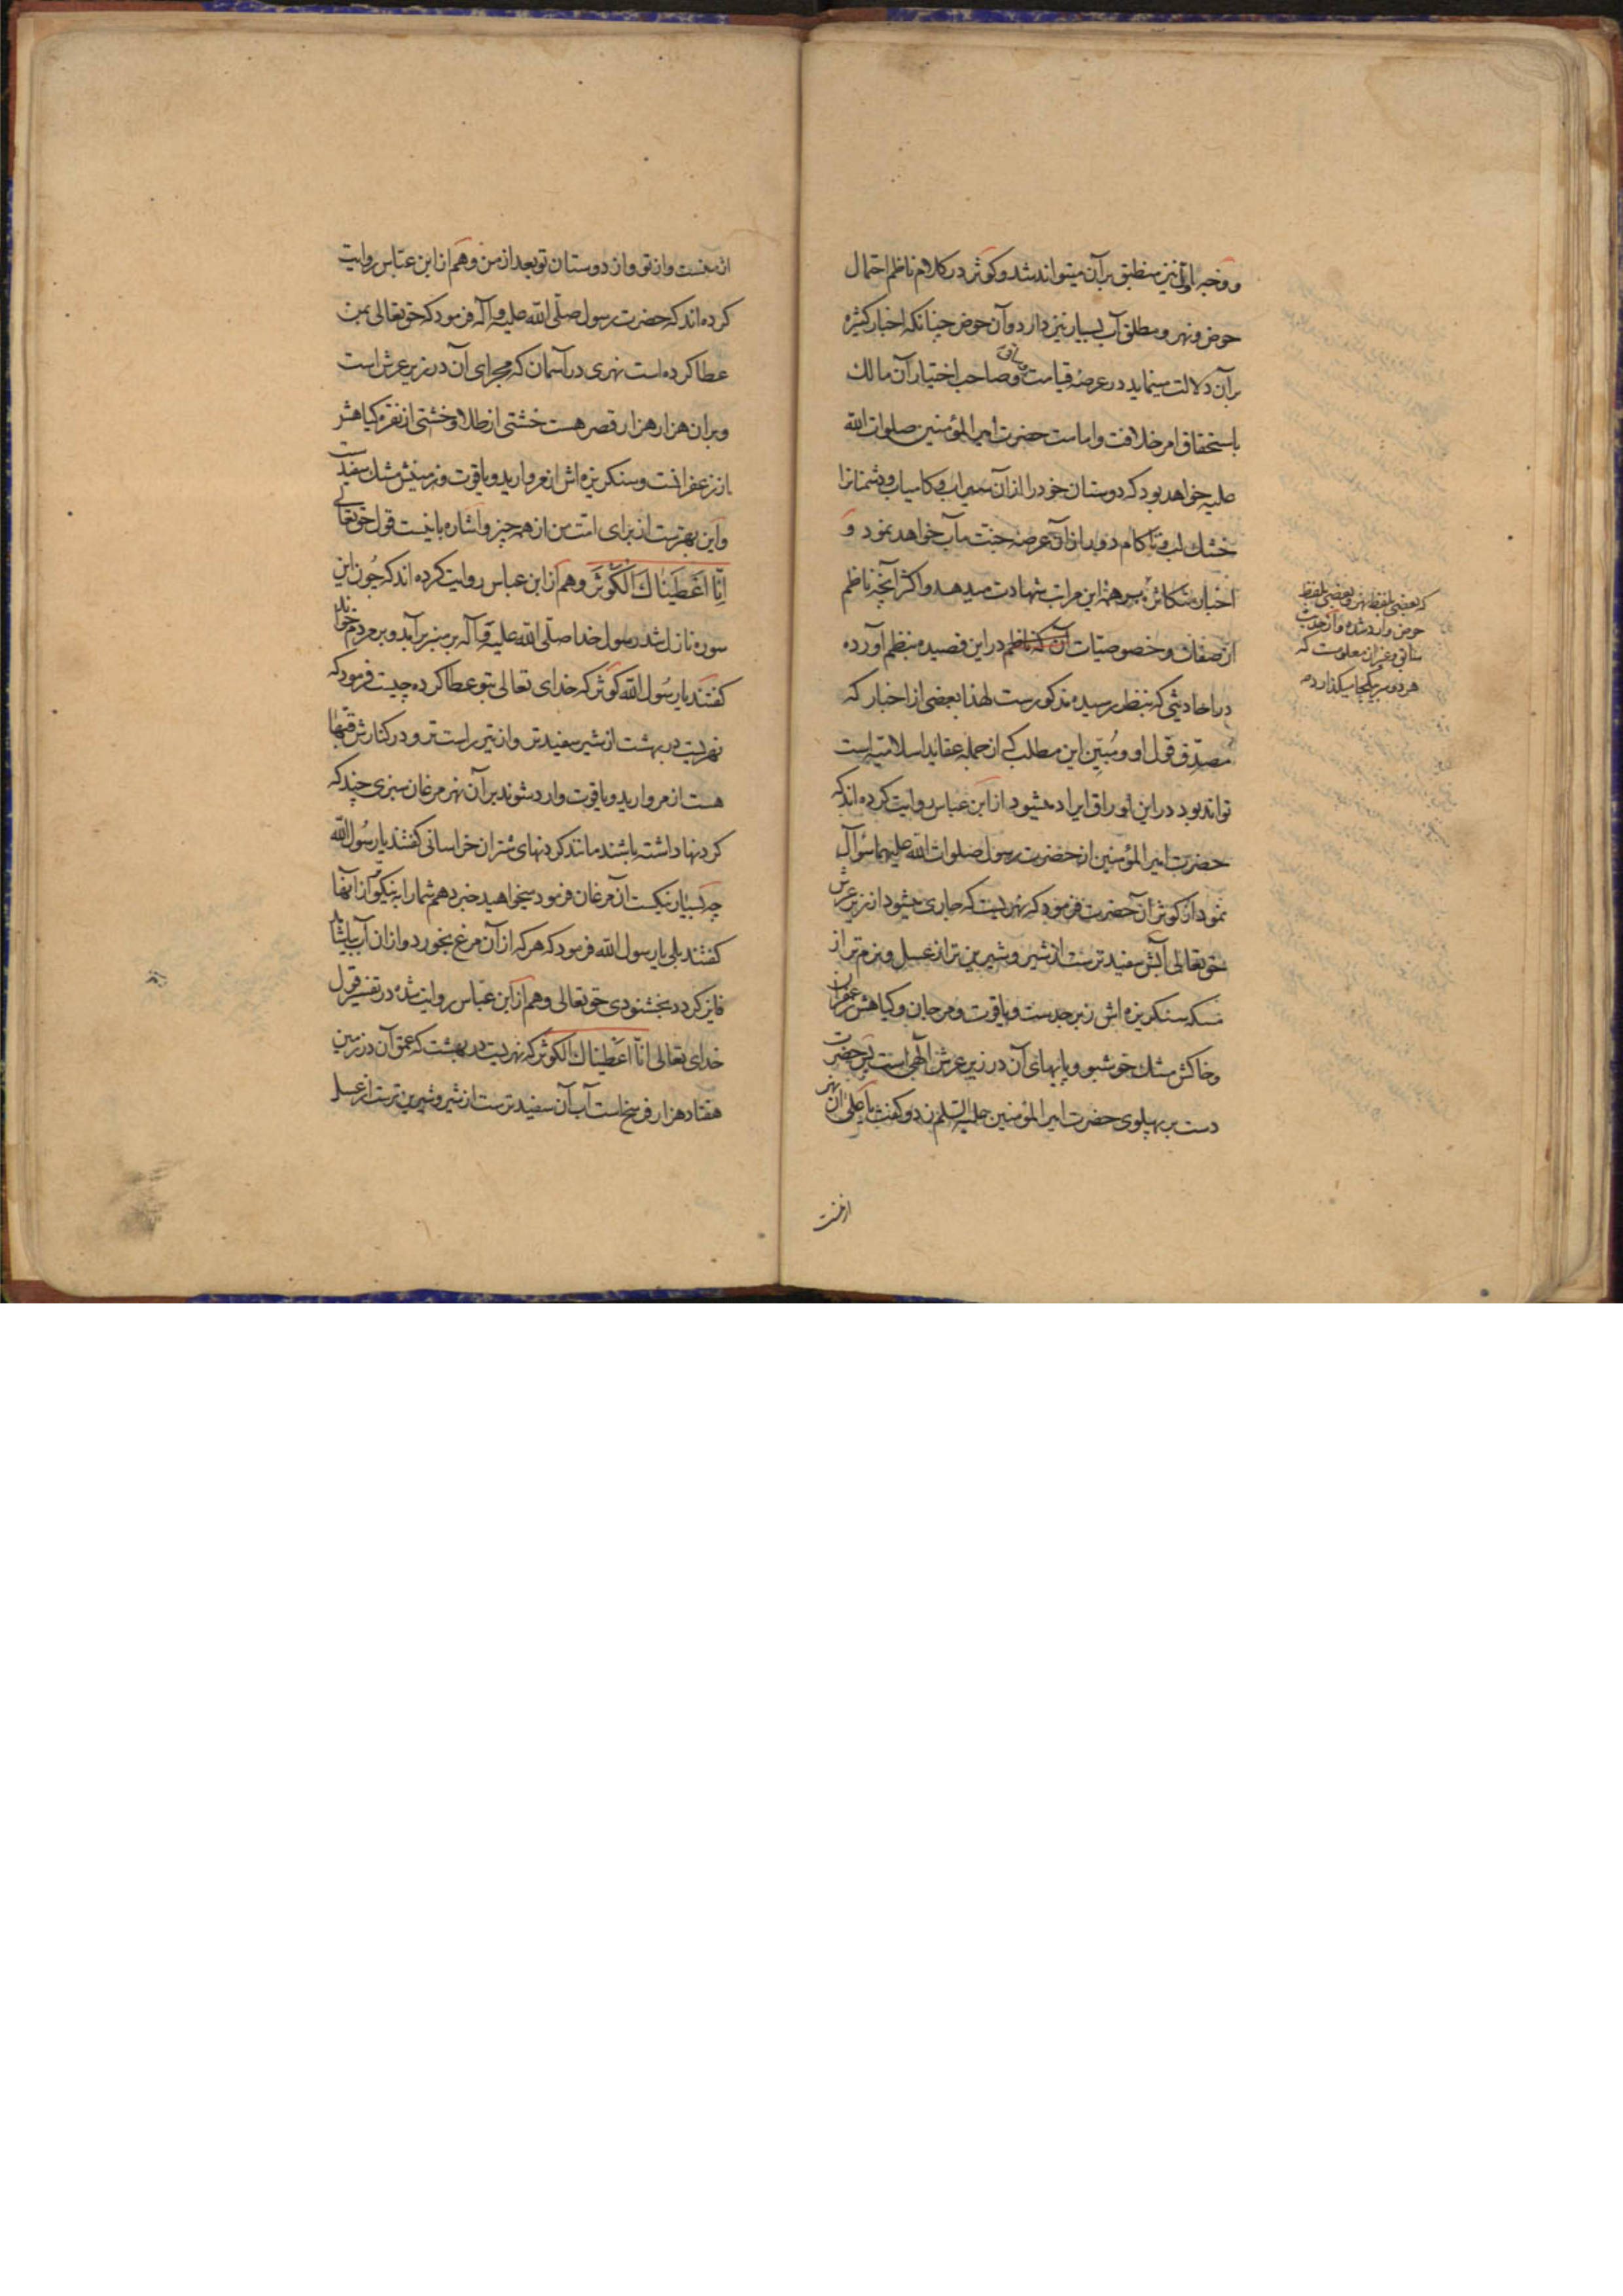 و وجه اوّل نیز منطبق بر آن میتواند شد و کوثر در کلام ناظم احتمال
حوض و نهر و مطلق آب بسیار نیز دارد و آن حوض چنانکه اخبار کثیره
بر آن دلالت مینماید در عرصهٔ قیامت و صاحب اختیار آن مالک
ساقی
باستحقاق امر خلافت و امامت حضرت امیر المؤمنین صلوات الله
علیه خواهد بود که دوستان خود را از آن سیراب و کامیاب و دشمنانرا
خشک لب و ناکام دور از آن عرصهٔ جنت مآب خواهد نمود و
اخبار متکاثره بر همهٔ این مراتب شهادت میدهد و اکثر آنچه ناظم
از صفات و خصوصیّات آن که ناظم در این قصیده بنظم آورده
در احادیثی که بنظر رسیده مذکورست لهذا بعضی از اخبار که
مصدّق قول او و مُبیّن این مطلب که از جمله عقاید اسلامیه است
تواند بود در این اوراق ایراد میشود از ابن عباس روایت کرده اند که
حضرت امیر المؤمنین از حضرت رسول صلوات الله علیهما سؤال
نمود از کوثر آن حضرت فرمود که نهریست که جاری میشود از زیر عرش
حقتعالی آبش سفیدترست از شیر و شیرین تر از عسل و نرم تر از
مسکه سنکریزه اش زبرجدست و یاقوت و مرجان و کیاهش زعفران
و خاکش مشک خوشبو و پایهای آن در زیر عرش الهی است پس حضرت
دست بر پهلوی حضرت امیر المؤمنین علیه السلم زد و کفت یا علی آن نهر
از منست
که بعضی بلفظ نهر و بعضی بلفظ
حوض وارد شده و از حدیث
سابق و غیر آن معلومست که
هر دو سر بیکجا میکذارد
از منست و از تو و از دوستان تو بعد از من و هم از ابن عبّاس روایت
کرده اند که حضرت رسول صلّی الله علیه و آله فرمود که حقتعالی بمن
عطا کرده است نهری در آسمان که مجرای آن در زیر عرش است
و بر آن هزار هزار قصر هست خشتی از طلا و خشتی از نقره کیاهش
از زعفرانست و سنکریزه اش از مروارید و یاقوت و زمینش مشک سفیدست
و این بهترست از برای امّت من از همه چیز و اشاره باینست قول حقتعالی
اِنّا اَعْطَیْناکَ الْکَوْثَرَ و هم از ابن عباس روایت کرده اند که چون این
سوره نازل شد رسول خدا صلّی الله علیه و آله بر منبر برآمد و بر مردم خواند
کفتند یا رسُول الله کوثر که خدای تعالی بتو عطا کرده چیست فرمود که
نهریست در بهشت از شیر سفیدتر و از تیر راست تر و در کنارش قبّها
هست از مروارید و یاقوت وارد شوند بر آن نهر مرغان سبزی چند که
کردنها داشته باشند مانند کردنهای شتران خراسانی کفتند یا رسُول الله
چه بسیار نیکست آن مرغان فرمود میخواهید خبر دهم شما را به نیکوتر از آنها
کفتند بلی یا رسول الله فرمود که هر که از آن مرغ بخورد و از آن آب بیاشامد
فایز کردد بخشنودی حقتعالی و هم از ابن عبّاس روایت شده در تفسیر قول
خدای تعالی انّا اعطیناک الکوثر که نهریست در بهشت که عمق آن در زمین
هفتاد هزار فرسخ است آب آن سفیدترست از شیر و شیرین ترست از عسل